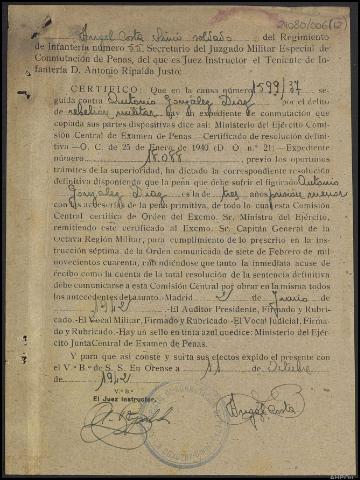 24080/006(12)
Angel Costa soldado del Regimiento
de Infantería número 55. Secretario del Juzgado Militar Especial de
Conmutación de Penas, del que es Juez Instructor el Teniente de In-
fantería D. Antonio Ripalda Justo:
CERTIFICO: Que en la causa número 1599/37 se-
guida contra Antonio González Díaz por el delito
de rebelión militar hay un expediente de conmutación que
copiada sus partes dispositivas dice así: Ministerio del Ejército Comi-
sión Central de Examen de Penas.—Certificado de resolución defini-
tiva—O. C. de 25 de Enero de 1940 (D. O. n.º 21)—Expediente
número 18088, previo los oportunos
trámites de la superioridad, ha dictado la correspondiente resolución
definitiva disponiendo que la pena que debe sufrir el figurado Antonio
González Díaz es la de tres años prisión menor
con las accesorias de la pena primitiva, de todo lo cual esta Comisión
Central certifica de Orden del Excmo. Sr. Ministro del Ejército,
remitiendo este certificado al Excmo. Sr. Capitán General de la
Octava Región Militar, para cumplimiento de lo prescrito en la ins-
trucción séptima, de la Orden comunicada de siete de Febrero de mil
novecientos cuarenta, rogándole que tanto la inmediata acuse de
recibo como la cuenta de la total resolución de la sentencia definitiva
debe comunicarse a esta Comisión Central por obrar en la misma todos
los antecedentes del asunto.-Madrid 21 de Junio de
1942 .-El Auditor Presidente, Firmado y Rubri-
cado.-El Vocal Militar, Firmado y Rubricado.-El Vocal Judicial, Firma-
do y Rubricado.-Hay un sello en tinta azul que dice: Ministerio del Ejér-
cito Junta Central de Examen de Penas.
Y para que así conste y surta sus efectos expido el presente con
el V.º B.º de S. S. En Orense a 11 de Octubre
de 1942
V.º B.º
El Juez Instructor,
A. Ripalda
Angel Costa